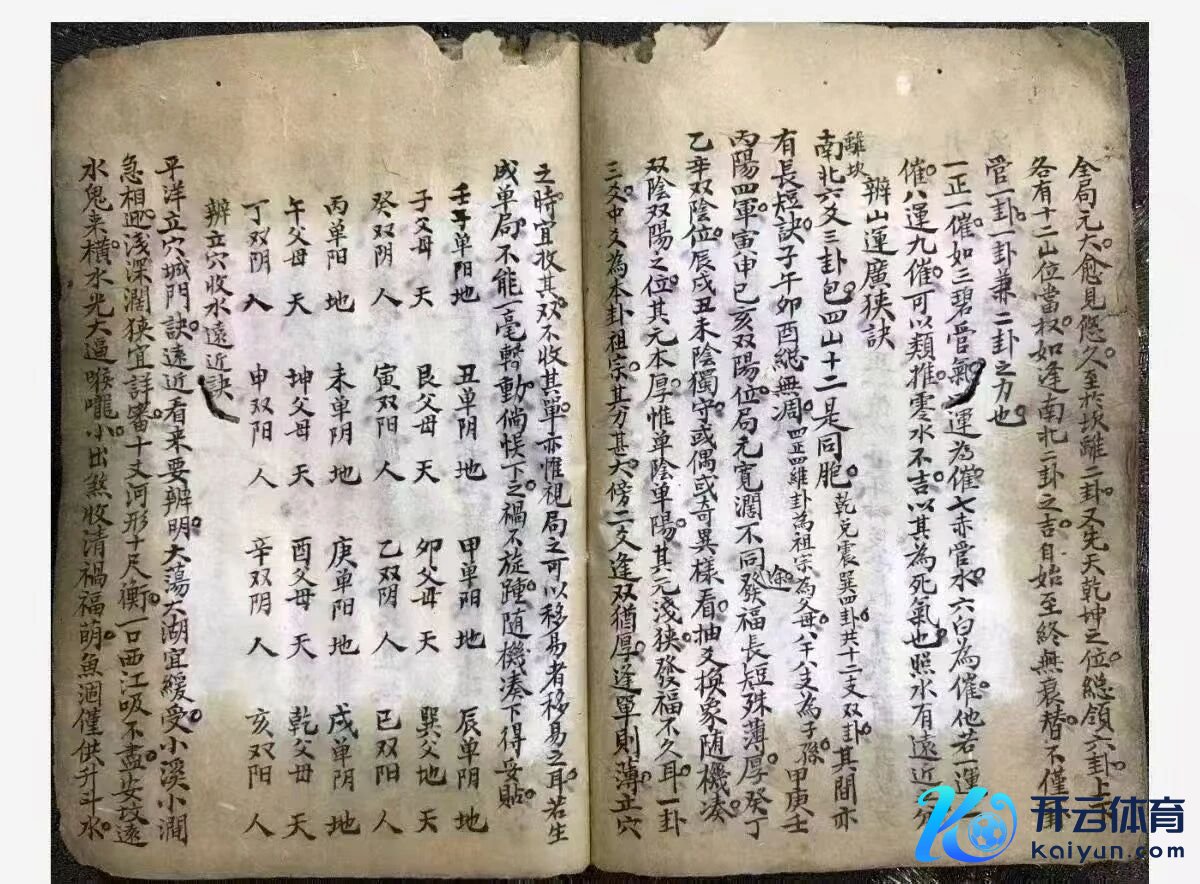 全局元大愈見悠久至於坎離二卦又先天乾坤之位總領六卦上下
各有十二山位當权如逢南北二卦之吉自始至終無衰替不僅一卦
管一卦一卦兼二卦之力也
一正一催如三碧管氣運為催七赤管水六白為催他若一運
催八運九催可以類推零水不吉以其為死氣也照水有遠近之分
辨山運廣狹訣
離坎
南北六爻三卦包四山十二是同胞乾兑震巽四卦共十二支双卦其間亦
有長短訣子午卯酉總無凋四正四維卦為祖宗為父母八干八支為子孫甲庚壬
丙陽四單寅申巳亥双陽位局元寬濶不同途發福長短殊薄厚癸丁
乙辛双陰位辰戌丑未陰獨守或偶或奇異樣看抽爻换象随機凑
双陰双陽之位其元本厚惟单陰单陽其元淺狭發福不久耳一卦
三爻中爻為本卦祖宗其力甚大傍二爻逢双猶厚逢單則薄正穴
之時宜收其双不收其單亦惟視局之可以移易者移易之耳若生
成单局不能一毫轉動倘悮下之禍不旋踵随機凑下得妥貼
壬子单阳地 丑单阴 地 甲单阳 地 辰单阴 地
子父母 天 艮父母 天 卯父母 天 巽父地 天
癸双阴 人 寅双阳 人 乙双阴 人 巳双阳 人
丙单阳 地 未单阴 地 庚单阳 地 戌单阴 地
午父母 天 坤父母 天 酉父母 天 乾父母 天
丁双阴 入 申双阳 人 辛双阴 人 亥双阳 人
辨立穴收水遠近訣
平洋立穴城門訣遠近看来要辨明大蕩大湖宜緩受小溪小澗
急相迎浅深濶狭宜詳審十丈河形十尺衡一口西江吸不盡安坟遠
水鬼来横水光大逼喉嚨小出煞收清禍福萌魚涸僅供升斗水
开云体育
kaiyun.com